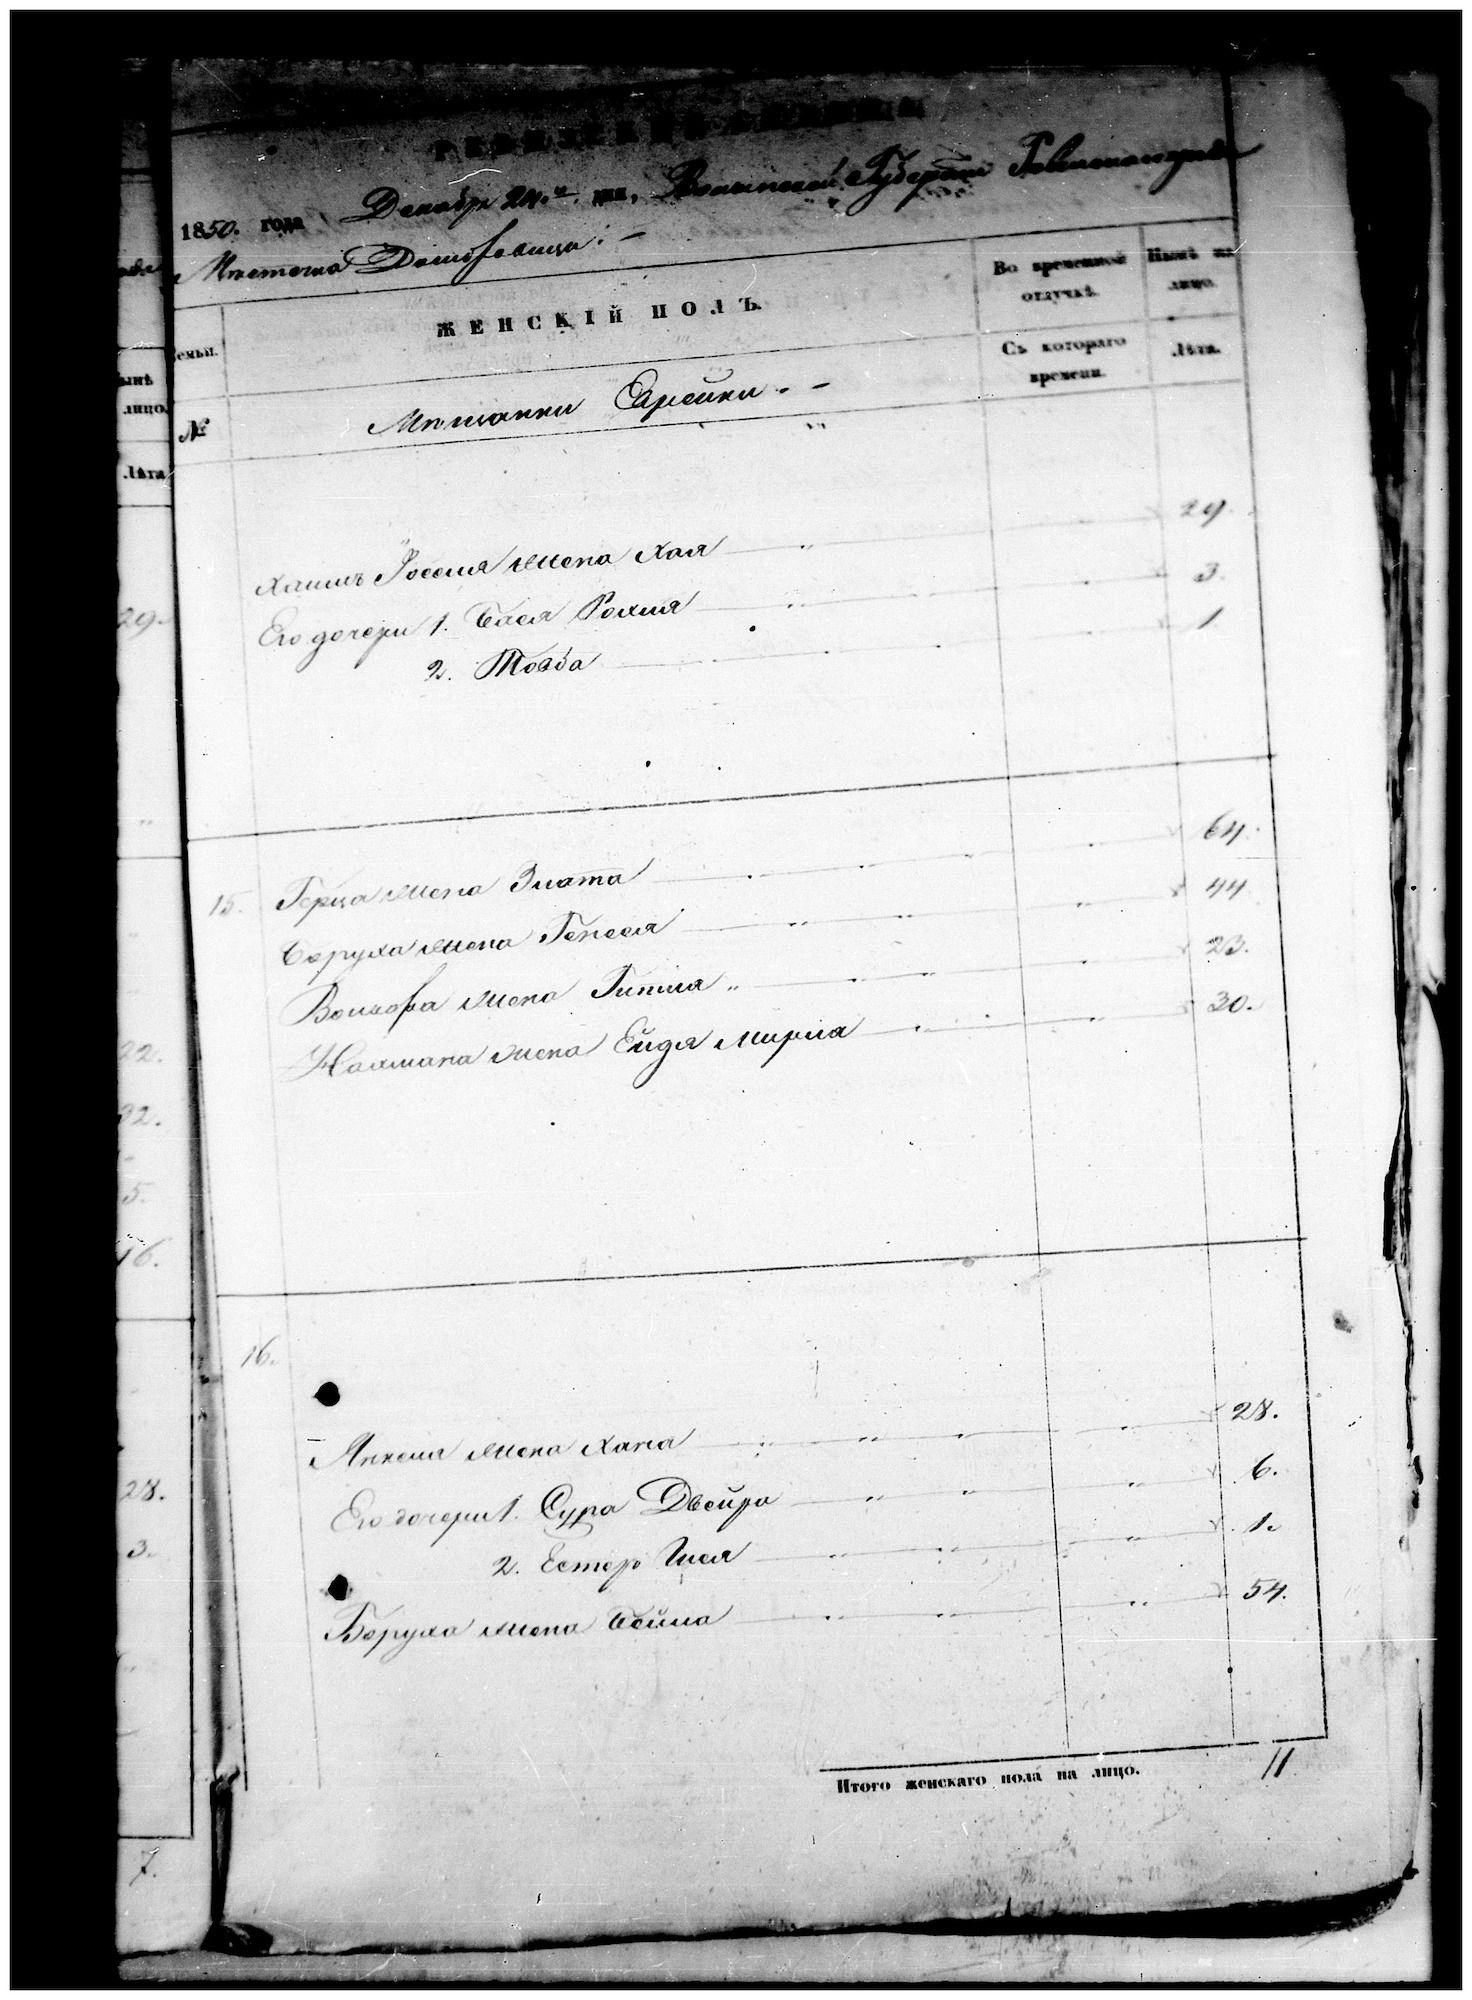 РЕВИЗСКАЯ СКАЗКА
1850. года Декабр 24.го дня, Волынской Губернии
Мѣстечка Домбровица. –
Семьи.
ЖЕНСКІЙ ПОЛЪ.
Во временной отлучкѣ.
Нынѣ на лицо.
№
Съ котораго времени.
Лѣта.
Мѣщанки Еврейки. –
жена Хая 29.
Его дочери 1. Бася Рохля 3.
2. Тоаба 1
15. Герца жена Злата 64.
Беруха жена Генеся 44
Волкова жена Гитля 23.
Нахмана жена Ейдя Мирля 30.
16.
Янкеля жена Хана 28.
Его дочери 1. Сура Двейра 6.
2. Естер 1.
Беруха жена Бейла 54.
Итого женскаго пола на лицо. 11
ынѣ
лицо.
Лѣта
29.
22.
32.
5.
16.
28.
3.
7.